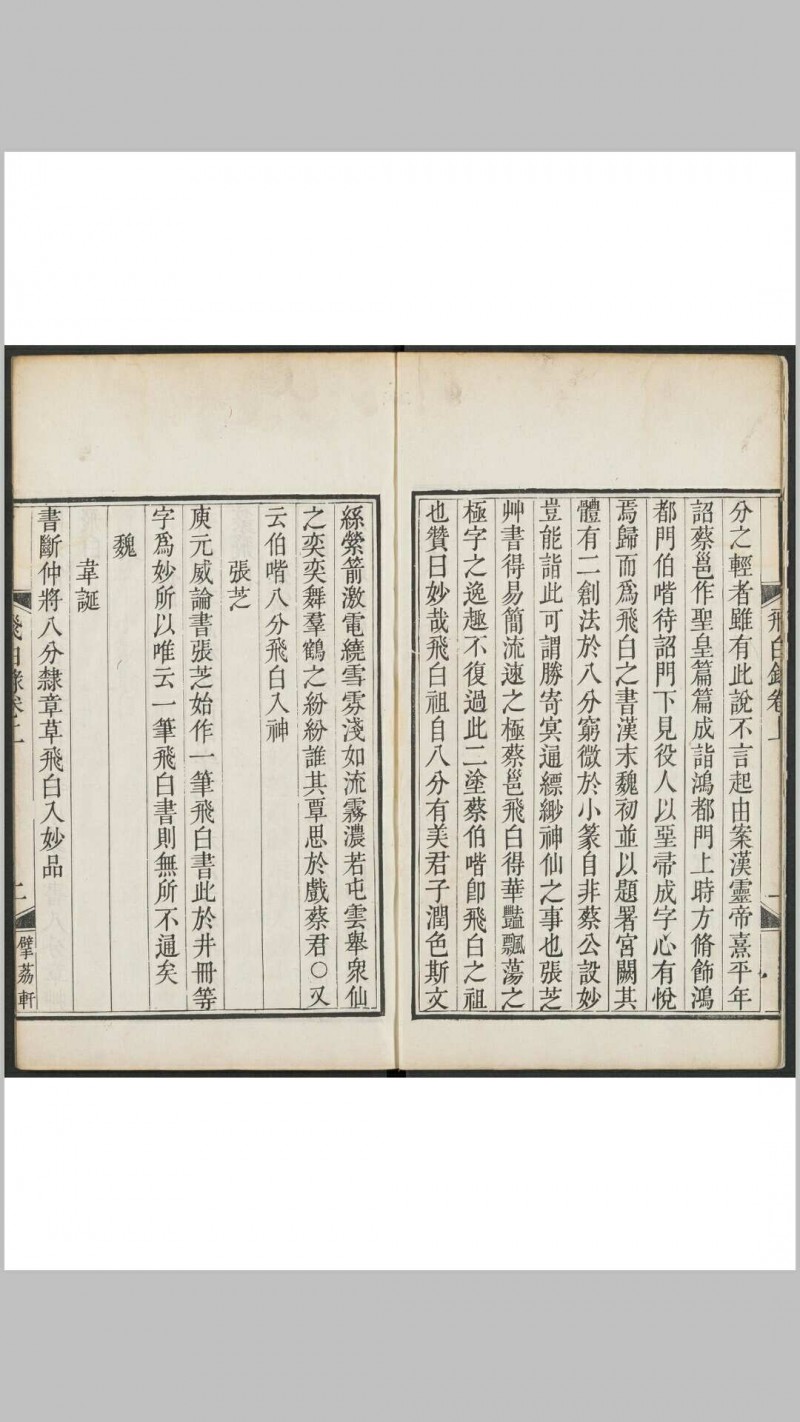 飛白錄卷上
一
分之輕者雖有此說不言起由案漢靈帝熹平年
詔蔡邕作聖皇篇篇成詣鴻都門上時方脩飾鴻
都門伯喈待詔門下見役人以堊帚成字心有悅
焉歸而爲飛白之書漢末魏初並以題署宮闕其
體有二創法於八分窮微於小篆自非蔡公設妙
豈能詣此可謂勝寄冥通縹緲神仙之事也張芝
艸書得易簡流速之極蔡邕飛白得華豔飄蕩之
極字之逸趣不復過此二塗蔡伯喈卽飛白之祖
也贊曰妙哉飛白祖自八分有美君子潤色斯文
絲縈箭激電繞雪雰淺如流霧濃若屯雲舉衆仙
之奕奕舞羣鶴之紛紛誰其覃思於戲蔡君○又
云伯喈八分飛白入神
張芝
庾元威論書張芝始作一筆飛白書此於井冊等
字爲妙所以唯云一筆飛白書則無所不通矣
魏
韋誕
書斷仲將八分隸章草飛白入妙品
飛白錄卷上
二
擘荔軒